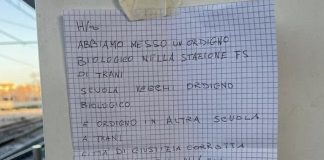 ABBIAMO MESSO UN ORDIGNO
BIOLOGICO NELLA STAZIONE FS
DI TRANI
SCUOLA VECCHI ORDIGNO
BIOLOGICO
E ORDIGNO IN ALTRA SCUOLA
A TRANI
CITTÀ DI GIUSTIZIA CORROTTA